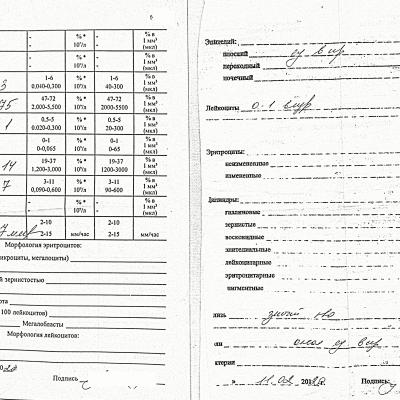 6
- - % * 10⁹/л - - % в 1 мм³ (мкл)
- - % * 10⁹/л - - % в 1 мм³ (мкл)
3 1-6 0,040-0,300 % * 10⁹/л 1-6 40-300 % в 1 мм³ (мкл)
75 47-72 2,000-5,500 % * 10⁹/л 47-72 2000-5500 % в 1 мм³ (мкл)
1 0,5-5 0,020-0,300 % * 10⁹/л 0,5-5 20-300 % в 1 мм³ (мкл)
0-1 0-0,065 % * 10⁹/л 0-1 0-65 % в 1 мм³ (мкл)
14 19-37 1,200-3,000 % * 10⁹/л 19-37 1200-3000 % в 1 мм³ (мкл)
7 3-11 0,090-0,600 % * 10⁹/л 3-11 90-600 % в 1 мм³ (мкл)
- - % * 10⁹/л - - % в 1 мм³ (мкл)
2-10 2-15 мм/час 2-10 2-15 мм/час
Морфология эритроцитов:
кроциты, мегалоциты)
й зернистостью
ота
100 лейкоцитов)
Мегалобласты
Морфология лейкоцитов:
Подпись
Эпителий:
плоский ед в п/зр
переходный
почечный
Лейкоциты 0-1 в п/зр
Эритроциты:
неизмененные
измененные
Цилиндры:
гиалиновые
зернистые
восковидные
эпителиальные
лейкоцитарные
эритроцитарные
пигментные
лизь
ли ед в п/зр
ктерии
» 11.02 201 Подпись: